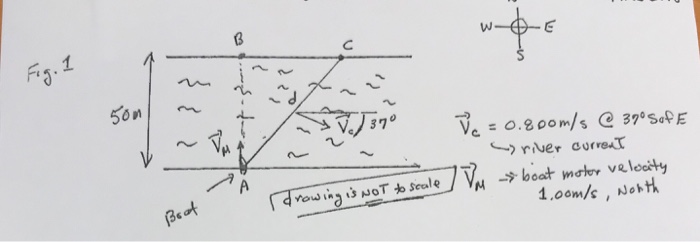 Fig. 1
B
C
W E
S
50m
d
V_c 37°
V_M
A
Boat
drawing is NOT to scale
V_c = 0.800m/s @ 37° S of E
↳ river current
V_M → boat motor velocity
1.00m/s, North